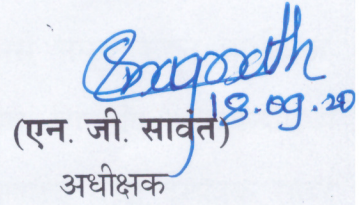 18.09.20
(एन. जी. सावंत)
अधीक्षक